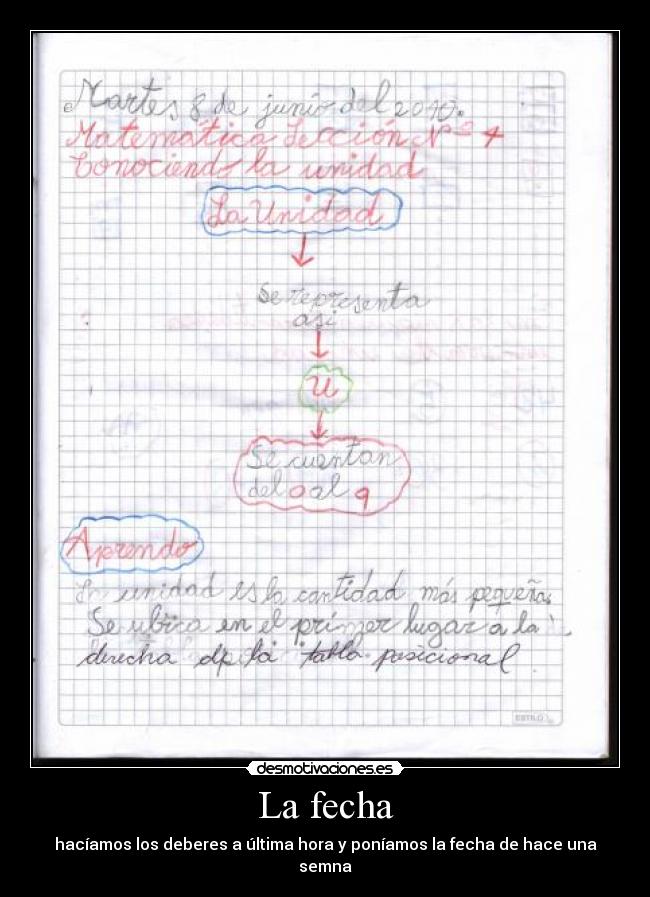 Martes 8 de junio del 2010.
Matemática Lección Nº 4
Conociendo la unidad
La Unidad
Se representa
así
U
Se cuentan
del 0 al 9
Aprendo
La unidad es la cantidad más pequeña.
Se ubica en el primer lugar a la
derecha de la tabla posicional
ESTILO
desmotivaciones.es
La fecha
hacíamos los deberes a última hora y poníamos la fecha de hace una
semna